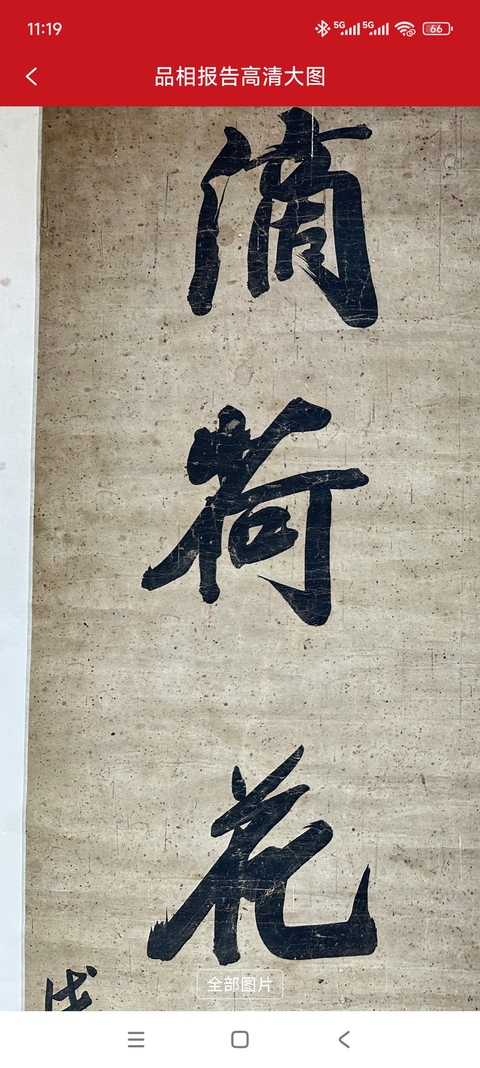 11:19
5G 5G 66
品相报告高清大图
滴
荷
花
全部图片